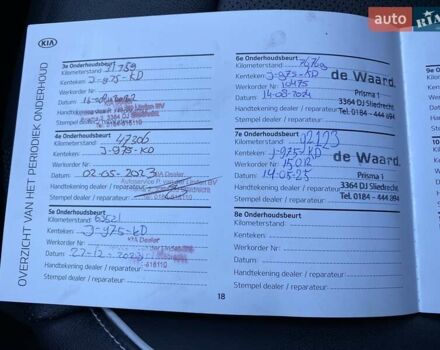 auto
RIA
KIA
OVERZICHT VAN HET PERIODIEK ONDERHOUD
3e Onderhoudsbeurt
Kilometerstand:
Kenteken: J-975-KD
Werkorder Nr.:
Datum:
Handtekening dealer / reparateur:
Stempel dealer / reparateur:
4e Onderhoudsbeurt
Kilometerstand: 47306
Kenteken: J-975-KD
Werkorder Nr.:
Datum: 02-05-2023 KIA Dealer
Handtekening dealer / reparateur:
Stempel dealer / reparateur:
5e Onderhoudsbeurt
Kilometerstand: 63521
Kenteken: J-975-KD
Werkorder Nr.: KIA Dealer
Datum: 27-12-2023
Handtekening dealer / reparateur:
Stempel dealer / reparateur:
6e Onderhoudsbeurt
Kilometerstand:
Kenteken: J-975-KD
Werkorder Nr.: 10475 de Waard
Datum: 14-08-2024 Prisma 1
Handtekening dealer / reparateur: 3364 DJ Sliedrecht
Stempel dealer / reparateur: Tel. 0184 - 444 894
7e Onderhoudsbeurt
Kilometerstand: 92123
Kenteken: J-975-KD
Werkorder Nr.: 15012 de Waard
Datum: 14-05-25 Prisma 1
Handtekening dealer / reparateur: 3364 DJ Sliedrecht
Stempel dealer / reparateur: Tel. 0184 - 444 894
8e Onderhoudsbeurt
Kilometerstand:
Kenteken:
Werkorder Nr.:
Datum:
Handtekening dealer / reparateur:
Stempel dealer / reparateur:
18